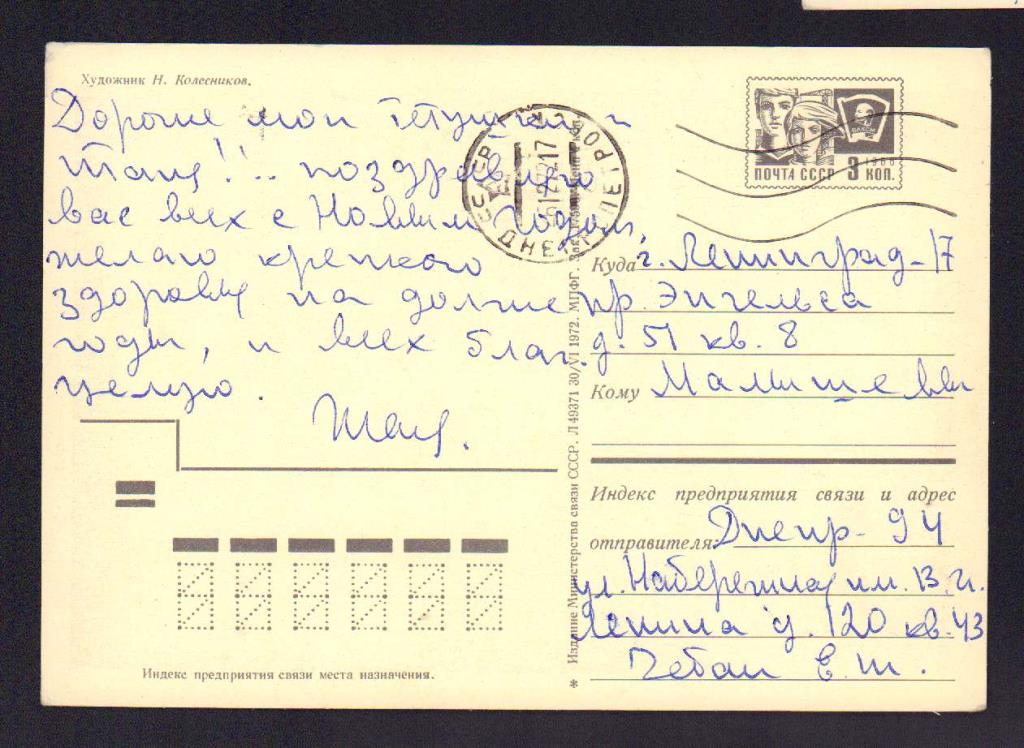 Художник Н. Колесников.
Дорогие мои тётушки и
Таня!.. поздравляю
вас всех с Новым Годом,
желаю крепкого
здоровья на долгие
годы, и всех благ.
целую.
Таня.
Индекс предприятия связи места назначения.
Издание Министерства связи СССР. Л 49371 30/VI 1972. МПФГ.
ПОЧТА СССР 3 КОП.
1966
ВЛКСМ
Куда г. Ленинград-17
пр. Энгельса
д. 51 кв. 8
Кому Малышевы
Индекс предприятия связи и адрес
отправителя Днепр-94
ул. Набережная им. В. И.
Ленина д. 120 кв. 43
Чебан Е. Т.